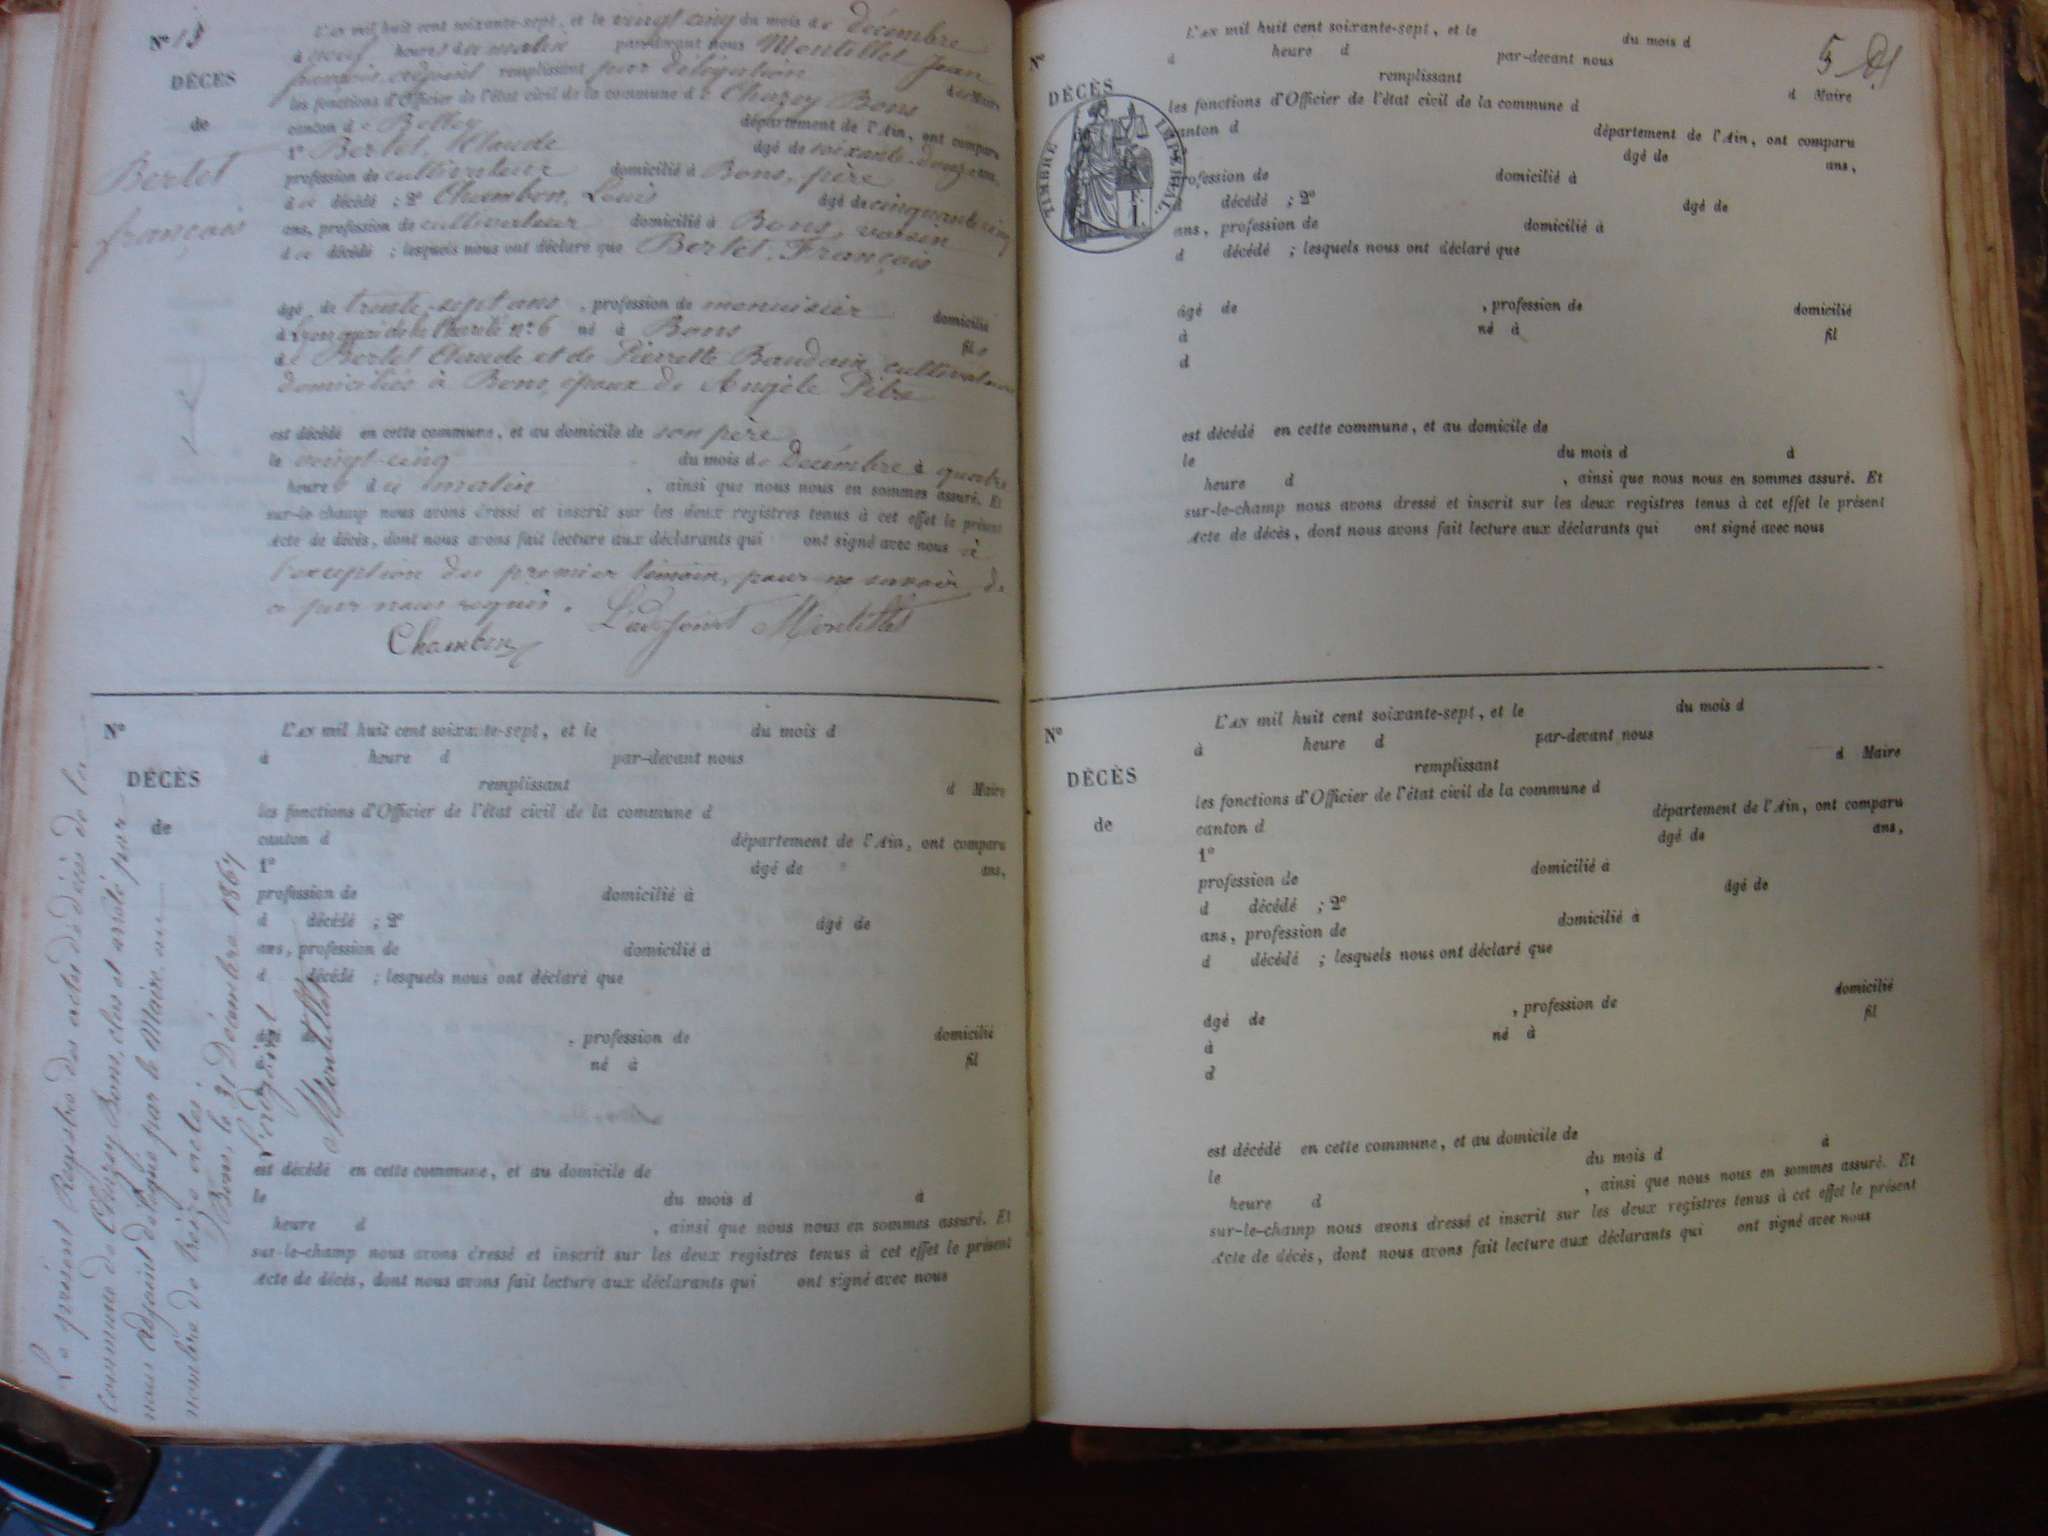 N° 13
DÉCÈS
de
Berlet
françois
L'AN mil huit cent soixante-sept, et le vingt cinq du mois de décembre
à neuf heures du matin par-devant nous Montillet Jean
françois adjoint remplissant par délégation
du Maire
les fonctions d'Officier de l'état civil de la commune de Chazey Bons
canton de Belley département de l'Ain, ont comparu
1° Berlet, Claude âgé de soixante-douze ans,
profession de cultivateur domicilié à Bons, père
du décédé ; 2° Chambon, Louis âgé de cinquante cinq
ans, profession de cultivateur domicilié à Bons, voisin
du décédé ; lesquels nous ont déclaré que Berlet. François
âgé de trente-sept ans , profession de menuisier domicilié
à Lyon quai de la Charité n° 6 né à Bons fils
de Berlet Claude et de Pierrette Baudoin, cultivateurs
domiciliés à Bons, époux de Angèle
est décédé en cette commune, et au domicile de son père
le vingt-cinq du mois de Décembre à quatre
heures du matin , ainsi que nous nous en sommes assuré. Et
sur-le-champ nous avons dressé et inscrit sur les deux registres tenus à cet effet le présent
Acte de décès, dont nous avons fait lecture aux déclarants qui ont signé avec nous à
l'exception du premier témoin, pour ne savoir de
ce par nous requis. L'adjoint Montillet
Chambon
N°
DÉCÈS
de
L'AN mil huit cent soixante-sept, et le du mois d
à heure d par-devant nous
remplissant d Maire
les fonctions d'Officier de l'état civil de la commune d
canton d département de l'Ain, ont comparu
1° âgé de ans,
profession de domicilié à
d décédé ; 2° âgé de
ans, profession de domicilié à
d décédé ; lesquels nous ont déclaré que
âgé de , profession de domicilié
né à fil
est décédé en cette commune, et au domicile de
le du mois d à
heure d , ainsi que nous nous en sommes assuré. Et
sur-le-champ nous avons dressé et inscrit sur les deux registres tenus à cet effet le présent
Acte de décès, dont nous avons fait lecture aux déclarants qui ont signé avec nous
Le présent Registre des actes de décès de la
Commune de Chazey Bons, clos et arrêté par
nous adjoint délégué par le Maire, au
nombre de treize actes.
Bons, le 31 Décembre 1867
L'adjoint
Montillet
5
N°
DÉCÈS
TIMBRE IMPÉRIAL.
L'AN mil huit cent soixante-sept, et le du mois d
d heure d par-devant nous
remplissant d Maire
les fonctions d'Officier de l'état civil de la commune d
canton d département de l'Ain, ont comparu
âgé de ans,
profession de domicilié à
d décédé ; 2° âgé de
ans, profession de domicilié à
d décédé ; lesquels nous ont déclaré que
âgé de , profession de domicilié
à né à fil
d
est décédé en cette commune, et au domicile de
le du mois d à
heure d , ainsi que nous nous en sommes assuré. Et
sur-le-champ nous avons dressé et inscrit sur les deux registres tenus à cet effet le présent
Acte de décès, dont nous avons fait lecture aux déclarants qui ont signé avec nous
N°
DÉCÈS
de
L'AN mil huit cent soixante-sept, et le du mois d
à heure d par-devant nous
remplissant d Maire
les fonctions d'Officier de l'état civil de la commune d
canton d département de l'Ain, ont comparu
1° âgé de ans,
profession de domicilié à
d décédé ; 2° âgé de
ans, profession de domicilié à
d décédé ; lesquels nous ont déclaré que
âgé de , profession de domicilié
à né à fil
d
est décédé en cette commune, et au domicile de
le du mois d à
heure d , ainsi que nous nous en sommes assuré. Et
sur-le-champ nous avons dressé et inscrit sur les deux registres tenus à cet effet le présent
Acte de décès, dont nous avons fait lecture aux déclarants qui ont signé avec nous